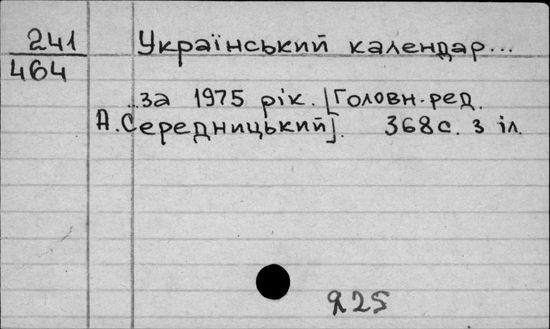 241 Український календар...
464
...за 1975 рік. [Головн. ред.
А. Середницький]. 368с. з іл.
225